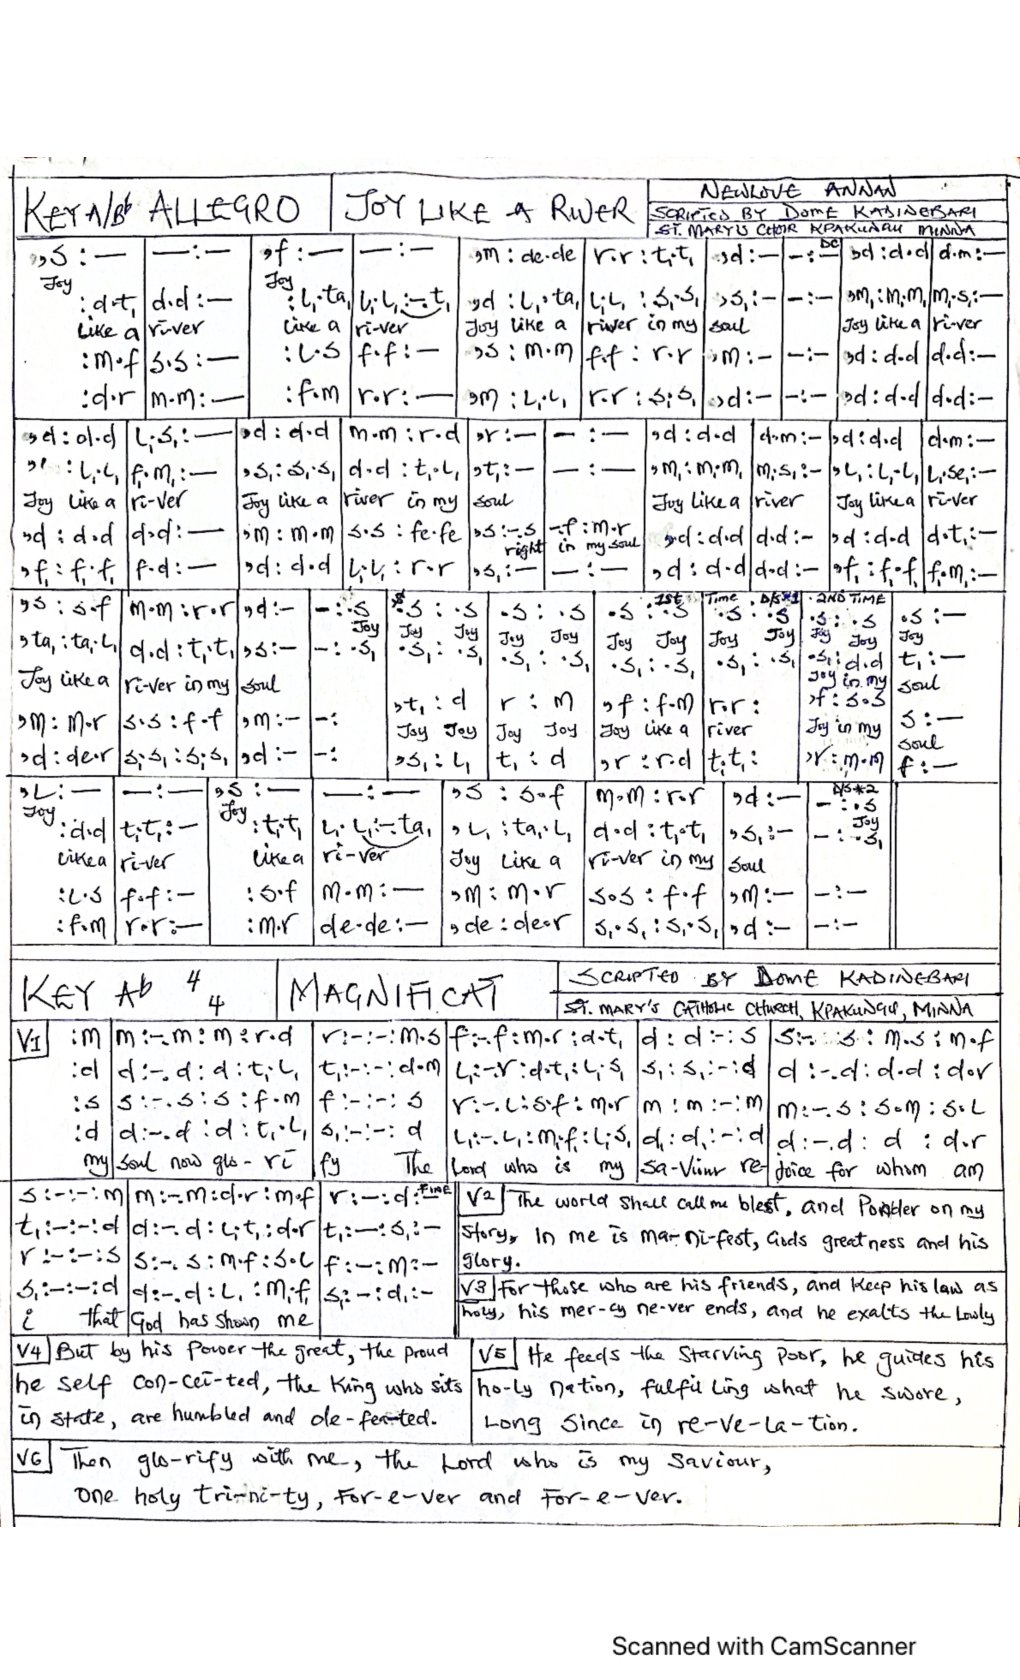 KEY A/Bb ALLEGRO
JOY LIKE A RIVER
NEWLOVE ANNAN
SCRIPTED BY DOME KADINEBARI
ST. MARY'S CHOIR KPAKUNGU MINNA
,s : — | — : — | ,f : — | — : — | ,m : de.de | r.r : t₁.t₁ | ,d : — | — : — DC | ,d : d.d | d.m : —
Joy Joy
: d.t₁ | d.d : — | : l₁.ta₁ | l₁.l₁ : –.t₁ | ,d : l₁.ta₁ | l₁.l₁ : s₁.s₁ | ,s₁ : — | — : — | ,m₁ : m₁.m₁ | m₁.s₁ : —
Like a ri-ver Like a ri-ver Joy like a river in my soul Joy like a ri-ver
: m.f | s.s : — | : l.s | f.f : — | ,s : m.m | f.f : r.r | ,m : — | — : — | ,d : d.d | d.d : —
: d.r | m.m : — | : f.m | r.r : — | ,m : l₁.l₁ | r.r : s₁.s₁ | ,d : — | — : — | ,d : d.d | d.d : —
,d : d.d | l₁.s₁ : — | ,d : d.d | m.m : r.d | ,r : — | — : — | ,d : d.d | d.m : — | ,d : d.d | d.m : —
: l₁.l₁ | f₁.m₁ : — | ,s₁ : s₁.s₁ | d.d : t₁.l₁ | ,t₁ : — | — : — | ,m₁ : m₁.m₁ | m₁.s₁ : — | ,l₁ : l₁.l₁ | l₁.se₁ : —
Joy like a ri-ver Joy like a river in my soul Joy like a river Joy like a ri-ver
,d : d.d | d.d : — | ,m : m.m | s.s : fe.fe | ,s : –.s | –.f : m.r | ,d : d.d | d.d : — | ,d : d.d | d.t₁ : —
right in my soul
,f₁ : f₁.f₁ | f₁.d : — | ,d : d.d | l₁.l₁ : r.r | ,s₁ : — | — : — | ,d : d.d | d.d : — | ,f₁ : f₁.f₁ | f₁.m₁ : —
1st Time D/S*1 2ND TIME
,s : s.f | m.m : r.r | ,d : — | — : .s | .s : .s | .s : .s | .s : .s | .s : .s | .s : .s | .s : —
Joy Joy Joy Joy Joy Joy Joy Joy Joy Joy Joy
,ta₁ : ta₁.l₁ | d.d : t₁.t₁ | ,s : — | — : .s₁ | .s₁ : .s₁ | .s₁ : .s₁ | .s₁ : .s₁ | .s₁ : .s₁ | .s₁ : d.d | t₁ : —
Joy like a ri-ver in my soul Joy in my soul
,m : m.r | s.s : f.f | ,m : — | — : | ,t₁ : d | r : m | ,f : f.m | r.r : | ,f : s.s | s : —
Joy Joy Joy Joy Joy like a river Joy in my soul
,d : de.r | s₁.s₁ : s₁.s₁ | ,d : — | — : | ,s₁ : l₁ | t₁ : d | ,r : r.d | t₁.t₁ : | ,r : m.m | f : —
,l : — | — : — | ,s : — | — : — | ,s : s.f | m.m : r.r | ,d : — | — : .s D/S*2
Joy Joy Joy
: d.d | t₁.t₁ : — | : t₁.t₁ | l₁.l₁ : –.ta₁ | ,l₁ : ta₁.l₁ | d.d : t₁.t₁ | ,s₁ : — | — : .s₁
like a ri-ver like a ri-ver Joy like a ri-ver in my soul
: l.s | f.f : — | : s.f | m.m : — | ,m : m.r | s.s : f.f | ,m : — | — : —
: f.m | r.r : — | : m.r | de.de : — | ,de : de.r | s₁.s₁ : s₁.s₁ | ,d : — | — : —
KEY Ab 4/4
MAGNIFICAT
SCRIPTED BY DOME KADINEBARI
ST. MARY'S CATHOLIC CHURCH, KPAKUNGU, MINNA
V1 : m | m : –.m : m : r.d | r : – : – : m.s | f : –.f : m.r : d.t₁ | d : d : – : s | s : –. s : m.s : m.f
: d | d : –.d : d : t₁.l₁ | t₁ : – : – : d.m | l₁ : –.r : d.t₁ : l₁.s₁ | s₁ : s₁ : – : d | d : –.d : d.d : d.r
: s | s : –.s : s : f.m | f : – : – : s | r : –.l : s.f : m.r | m : m : – : m | m : –.s : s.m : s.l
: d | d : –.d : d : t₁.l₁ | s₁ : – : – : d | l₁ : –.l₁ : m₁.f₁ : l₁.s₁ | d₁ : d₁ : – : d | d : –.d : d : d.r
my soul now glo-ri fy The Lord who is my Sa-viour re-joice for whom am
s : – : – : m | m : –.m : d.r : m.f | r : – : d : FINE
t₁ : – : – : d | d : –.d : l₁.t₁ : d.r | t₁ : — : s₁ : –
r : – : – : s | s : –.s : m.f : s.l | f : – : m : –
s₁ : – : – : d | d : –.d : l₁ : m₁.f₁ | s₁ : – : d₁ : –
i that God has shown me
V2 The world shall call me blest, and Ponder on my
story, In me is ma-ni-fest, Gods greatness and his
glory.
V3 For those who are his friends, and keep his law as
holy, his mer-cy ne-ver ends, and he exalts the Lowly
V4 But by his Power the great, the proud
he self con-cei-ted, the King who sits
in state, are humbled and de-feated.
V5 He feeds the Starving Poor, he guides his
ho-ly nation, fulfil ling what he swore,
Long Since in re-ve-la-tion.
V6 Then glo-rify with me, the Lord who is my Saviour,
One holy tri-ni-ty, For-e-ver and For-e-ver.
Scanned with CamScanner